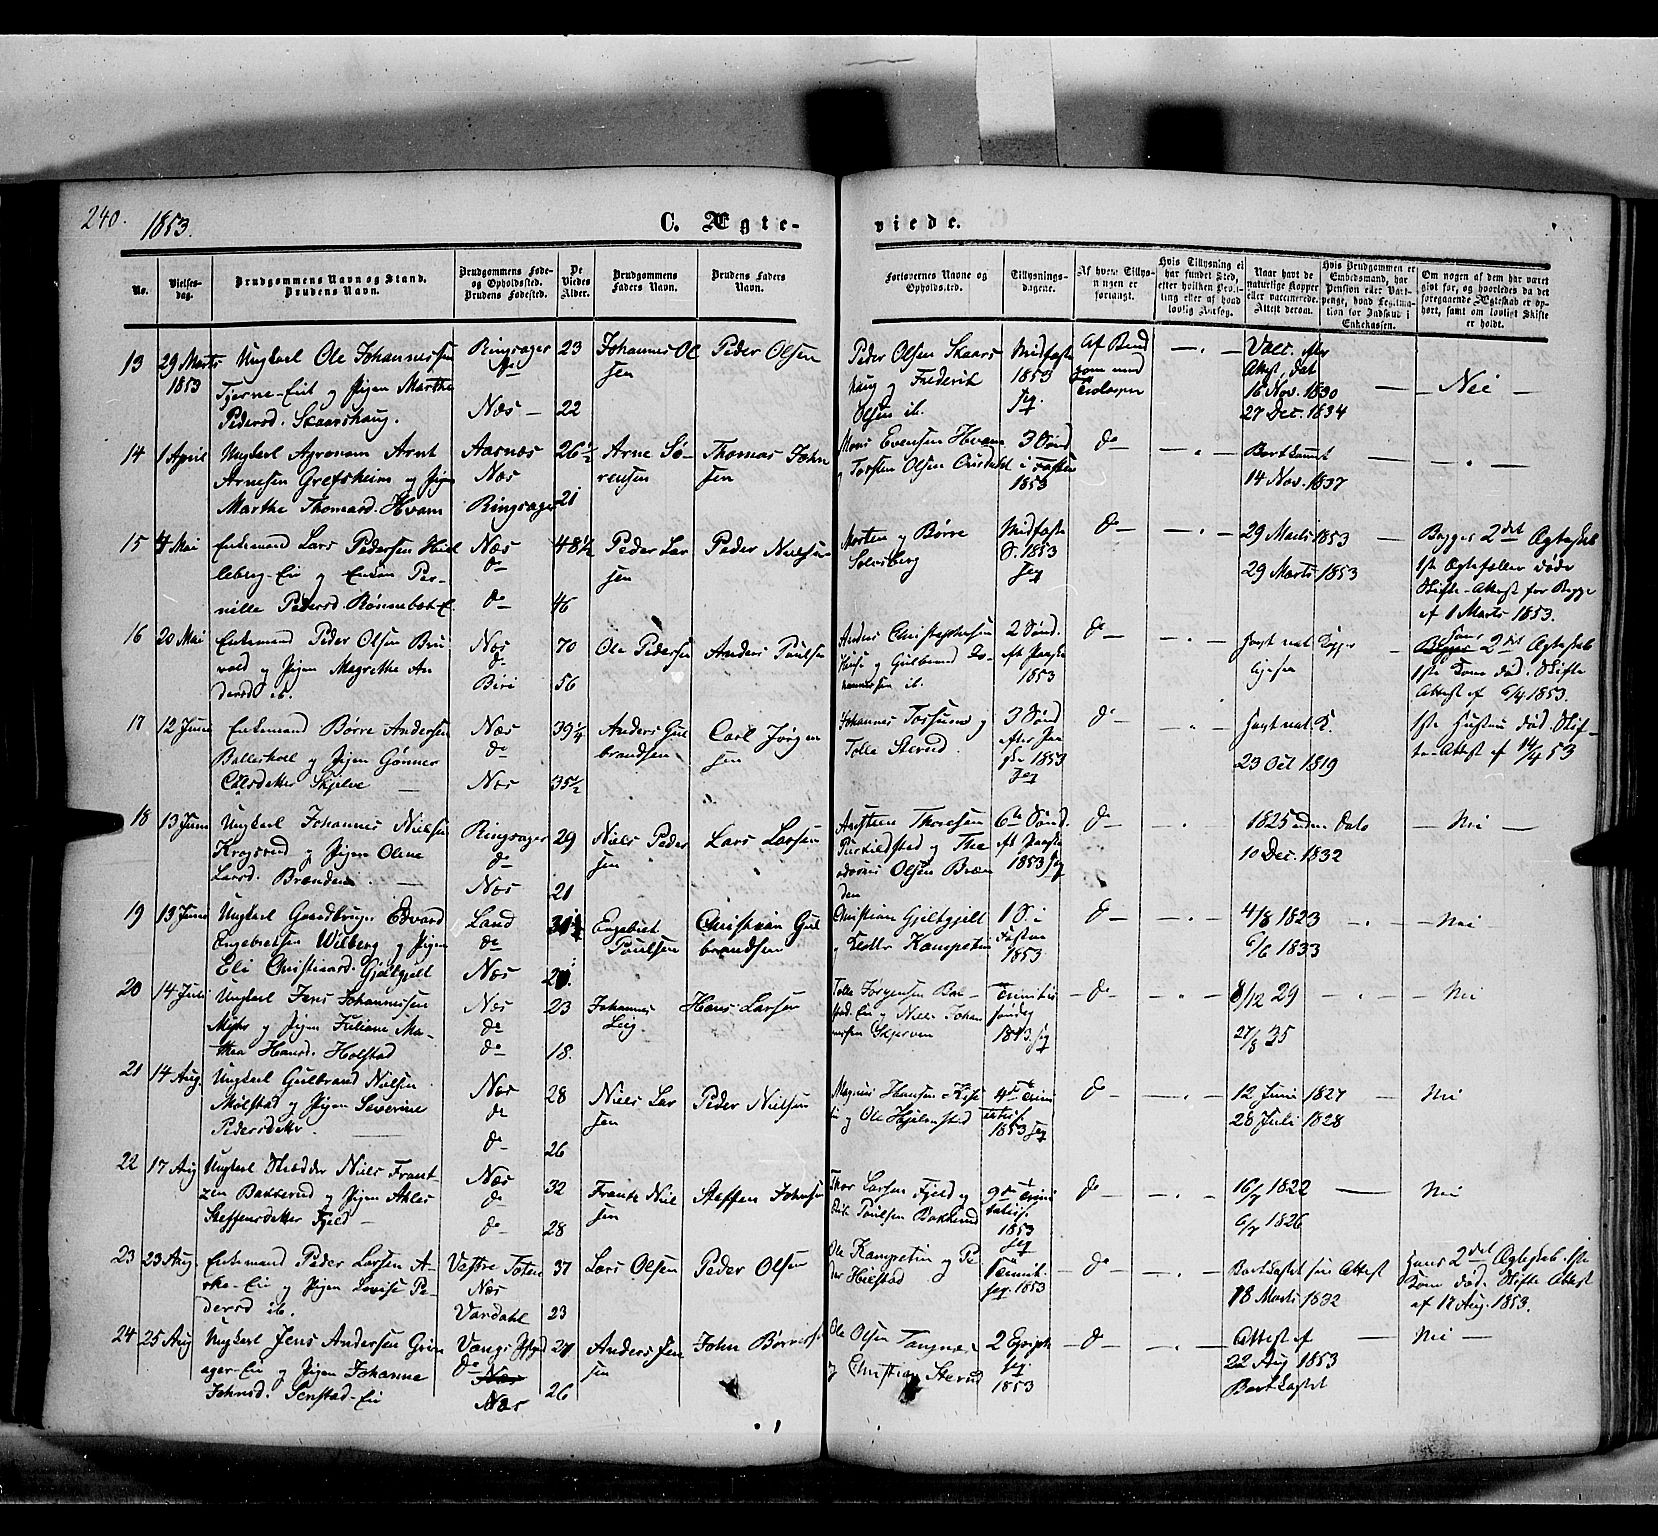 240. 1853. C. Ægte- viede.
No.
Vielses-
dag.
Brudgommens Navn og Stand.
Brudens Navn.
Brudgommens Føde-
og Opholdssted.
Brudens Fødested.
De
Viedes
Alder.
Brudgommens
Faders Navn.
Brudens Faders
Navn.
Forlovernes Navne og
Opholdssted.
Tillysnings-
dagene.
Af hvem Tillys-
ningen er
forlangt.
Hvis Tillysning ei
har fundet Sted,
efter hvilken Proj-
ting eller af hvad
lovlig Aarsag.
Naar havt de
naturlige Kopper
eller vaccinerede.
Attest derom.
Hvis Brudgommen er
Embedsmand, har
Pension eller Vart-
penge, hvad Legitima-
tion for Indskud i
Enkekassen.
Om nogen af dem har været
gift før, og hvorledes da det
foregaaende Ægteskab er op-
hørt, samt om lovligt Skifte
er holdt.
13 29 Marts 1853
Ungkarl Ole Johannessen
Tjerne-Eiet og Pigen Marthe
Pedersd. Skaarshaug.
Ringsager
do
Næs —
23
22
Johannes Ol
sen
Peder Olsen
Peder Olsen Skaars
haug og Frederik
Olsen ib.
Midfaste
1853
Seq.
Af Brud
gommen
— . —
Vacc. efter
Attest, dat
16 Nov. 1830
27 Dec. 1834
—
— Nei —
14 1 April
Ungkarl Agronom Arnt
Arnesen Grefsheim og Pigen
Marthe Thomasd. Hvam
Aasnæs
Næs
Ringsager
26½
21
Arne Sø-
rensen
Thomas John
sen
Mons Evensen Hvam
og Torsten Olsen
3 Sønd
i Fasten
1853
do —
— . —
Bortkommet
14 Nov. 1837
— . —
15 4 Mai
Enkemand Lars Pedersen
leberg-Eie og Enken Per-
nille Pedersd. Rønnebæk-E.
Næs
do
do
48½
46
Peder Lar
sen
Peder Nielsen
Morten og Børre
Solvsberg
Midfaste
S. 1853
Seq
do —
— . —
29 Marts 1853
29 Marts 1853
—
Begges 2det Ægteskab
1ste Ægtefæller døde
Skifte-Attest for Begge
af 1 Marts 1853.
16 20 Mai
Enkemand Peder Olsen Bru
vold og Pigen Magrethe An
dersd ib.
Næs
do
Biri
70
56
Ole Pedersen
Anders Poulsen
Anders Christophersen
og Gulbrand Jo-
hannessen ib.
2 Sønd.
eft Paaske
1853
do —
— . —
havt nat Kopper
ligesaa
—
Hans 2det Ægteskab
1ste Kone død. Skifte
Attest af 6/4 1853.
17 12 Juni
Enkemand Børre Andersen
Ballerhol og Pigen Gønner
Carlsdatter Skjelve —
Næs
do
Næs
39¼
35½
Anders Gul
brandsen
Carl Jørgen
sen
Johannes Torsrud og
Tolle Sterud.
3 Sønd
efter Paa
ske 1853
Seq
do —
— . —
havt nat. K.
23 Oct 1819
1ste Hustru død. Skif-
te-Attest af 14/4 53
18 13 Juni
Ungkarl Johannes Nielsen
Krogsrud og Pigen Oline
Larsd. Brænden. —
Ringsager
do
Næs
29
21
Niels Peder
sen
Lars Larsen
Austeen Thoresen
og The
odorus Olsen Bræn
den
6te Sønd.
eft Paaske
1853 Seq
do —
— . —
1825 uden Dato
10 Dec. 1832
— Nei —
19 13 Juni
Ungkarl Gaardbruger Edvard
Engebretsen Wilberg og Pigen
Eli Christiansd. Gjeltgjelt
Land
do
Næs
Engebret
Poulsen
Christian Gul
brandsen
Christian Gjeltgjelt
og Klotte Kampesten
1 S. i
Fasten
1853
do —
— . —
4/8 1823
6/6 1833
— . —
Nei —
20 14 Juli
Ungkarl Jens Johannessen
Myhr og Pigen Juliane Ma-
thea Hansd. Holstad
Næs
do
do
23
18.
Johannes
Hans Larsen
Tolle Jørgensen
og Niels Johan
nessen Skjerven
Trinitatis
søndag
1853. Seq
— do —
— . —
8/12 29
27/8 35
— . —
— Nei
21 14 Aug.
Ungkarl Gulbrand Nielsen
Mælstad og Pigen Severine
Pedersdatter —
Næs
do
do
28
26
Niels Lar
sen
Peder Nielsen
Magnus Hansen
og Ole Hjelmstad
4de Trini
tatis
1853 Seq
do —
— . —
12 Juni 1827
28 Juli 1828
—
Nei
22 17 Aug
Ungkarl Skrædder Niels Frant-
zen Bakkerud og Pigen Ahles
Steffensdatter Fjeld —
Næs
do
do
32
28
Frants Niel
sen
Steffen Johnsen
Thor Larsen Fjeld og
Poulsen Bakkerud
9de Trini
tatis.
1853
Seq
do —
— . —
16/7 1822
6/7 1826
—
Nei
23 23 Aug.
Enkemand Peder Larsen A-
ske-Eie og Pigen Lovise Pe-
dersd ib.
Vestre Toten
Næs
Vardahl
37
23
Lars Olsen
Peder Olsen
Ole Kampesten og Pe
der Hielstad
Trinit.
Seq. 1853
— do —
— . —
Bortkastet sin Attest
18 Marts 1832
Hans 2det Ægteskab. 1ste
Kone død. Skifte Attest
af 17 Aug. 1853.
24 25 Aug
Ungkarl Jens Andersen Grin
ager-Eie og Pigen Johanne
Johnsd. Senstad-Eie
Vangs
do Næs
Næs
27
26
Anders Jen
sen
John Børresen
Ole Olsen Tangnæs
og Christian Sterud
2 Epiph
Seq.
1853
— do —
— . —
Attest af
22 Aug 1853
Bortkastet
—
Nei —